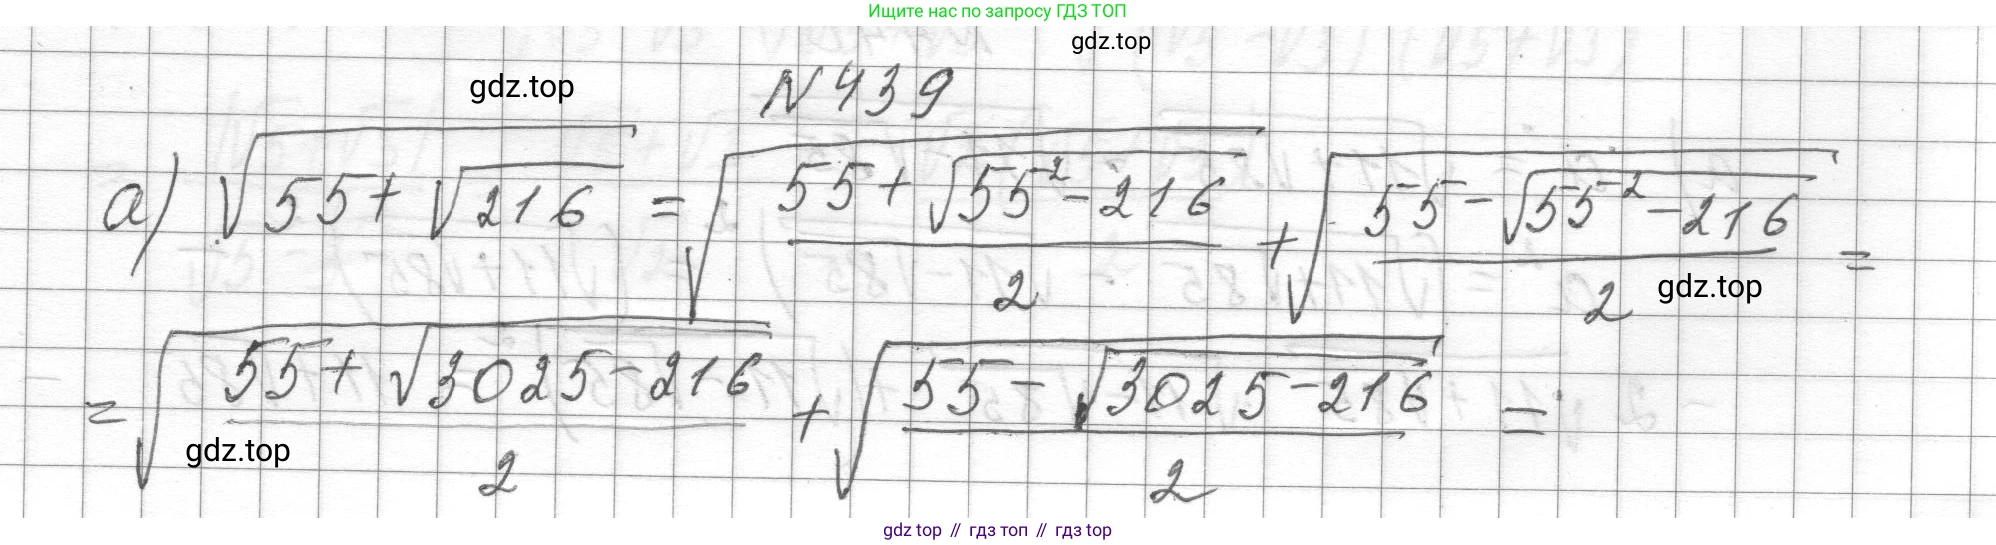 Ищите нас по запросу ГДЗ ТОП
gdz.top
gdz.top
N 439
а) √(55+√216) = √((55+√(55²-216))/2) + √((55-√(55²-216))/2) =
gdz.top
= √((55+√(3025-216))/2) + √((55-√(3025-216))/2) =
gdz.top
gdz top // гдз топ // гдз top